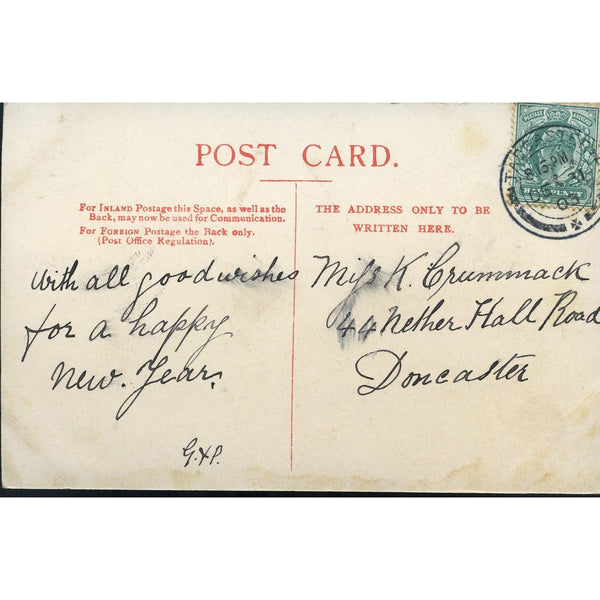 POST CARD.
For INLAND Postage this Space, as well as the
Back, may now be used for Communication.
For FOREIGN Postage the Back only.
(Post Office Regulation).
THE ADDRESS ONLY TO BE
WRITTEN HERE.
With all good wishes
for a happy
New. Year.
G.&P.
Miss K. Crummack
44 Nether Hall Road
Doncaster
POSTAGE REVENUE
HALFPENNY
8.15 PM
DE 31
03